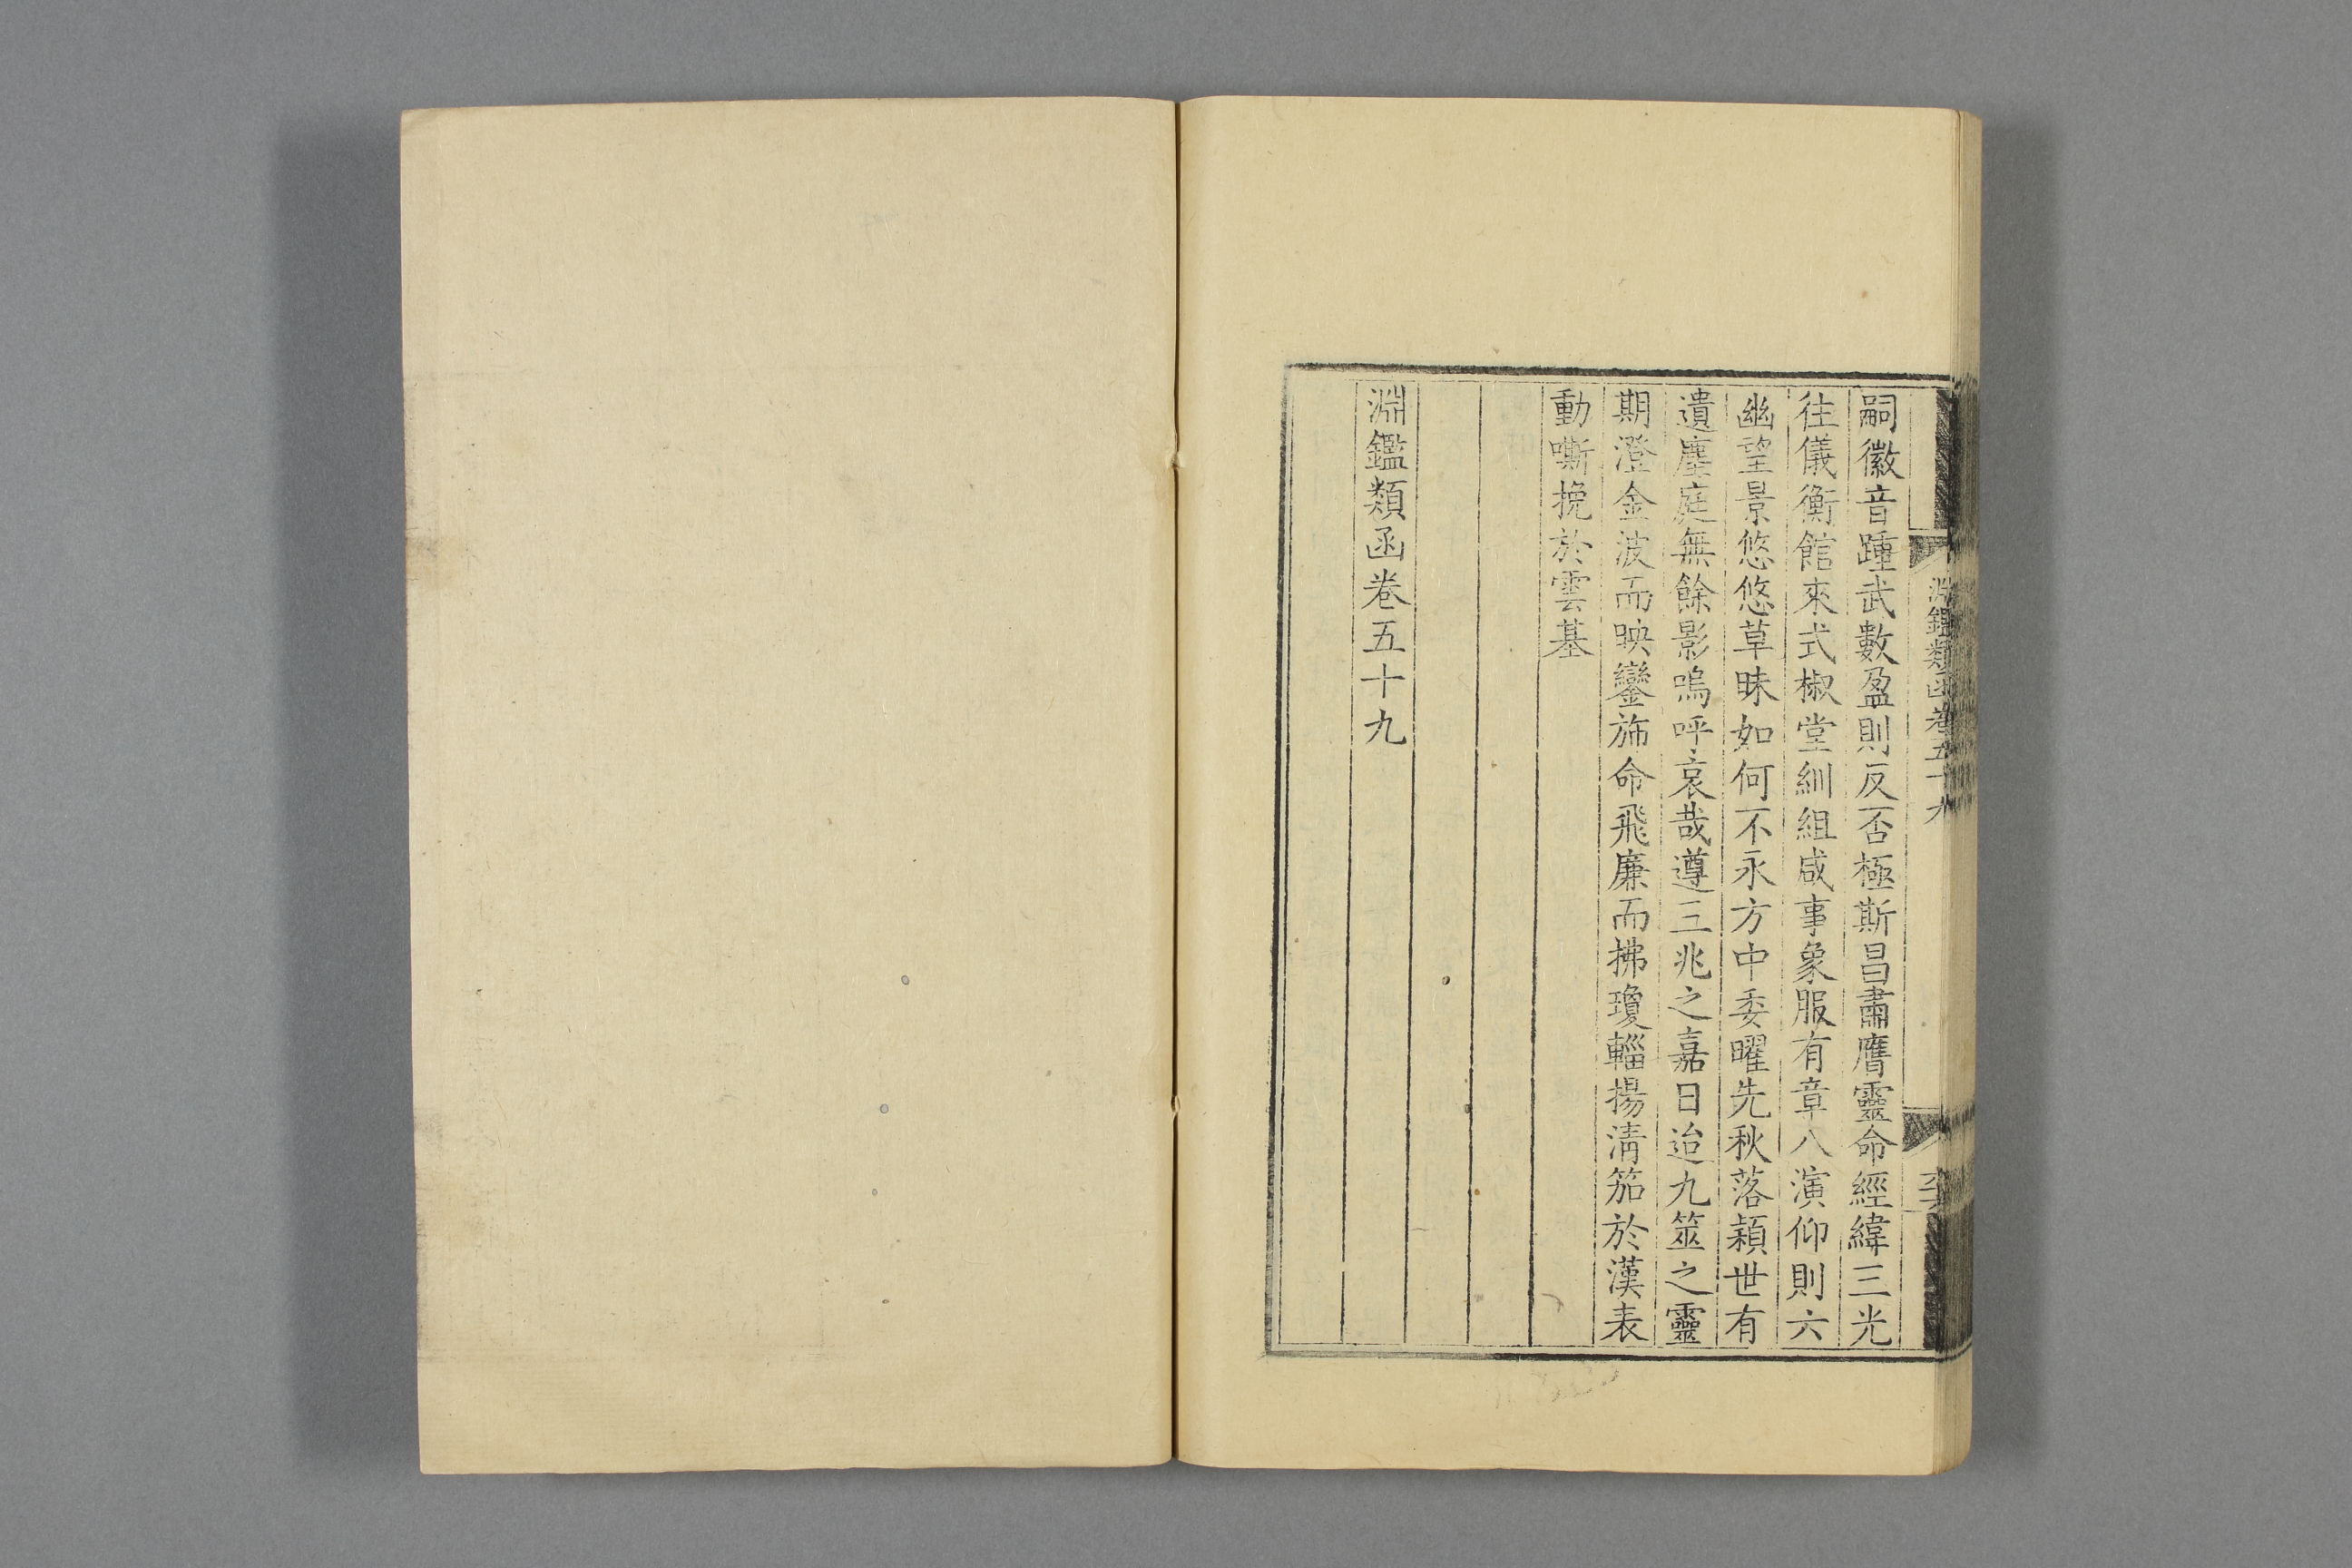 淵鑑類函卷五十九
嗣徽音踵武數盈則反否極斯昌肅膺靈命經緯三光
往儀衡館來式椒堂紃組咸事象服有章八演仰則六
幽望景悠悠草昧如何不永方中委曜先秋落穎世有
遺塵庭無餘影嗚呼哀哉遵三兆之嘉日迨九筮之靈
期澄金波而映鑾斾命飛廉而拂瓊輜揚淸笳於漢表
動嘶挽於雲基
淵鑑類函卷五十九